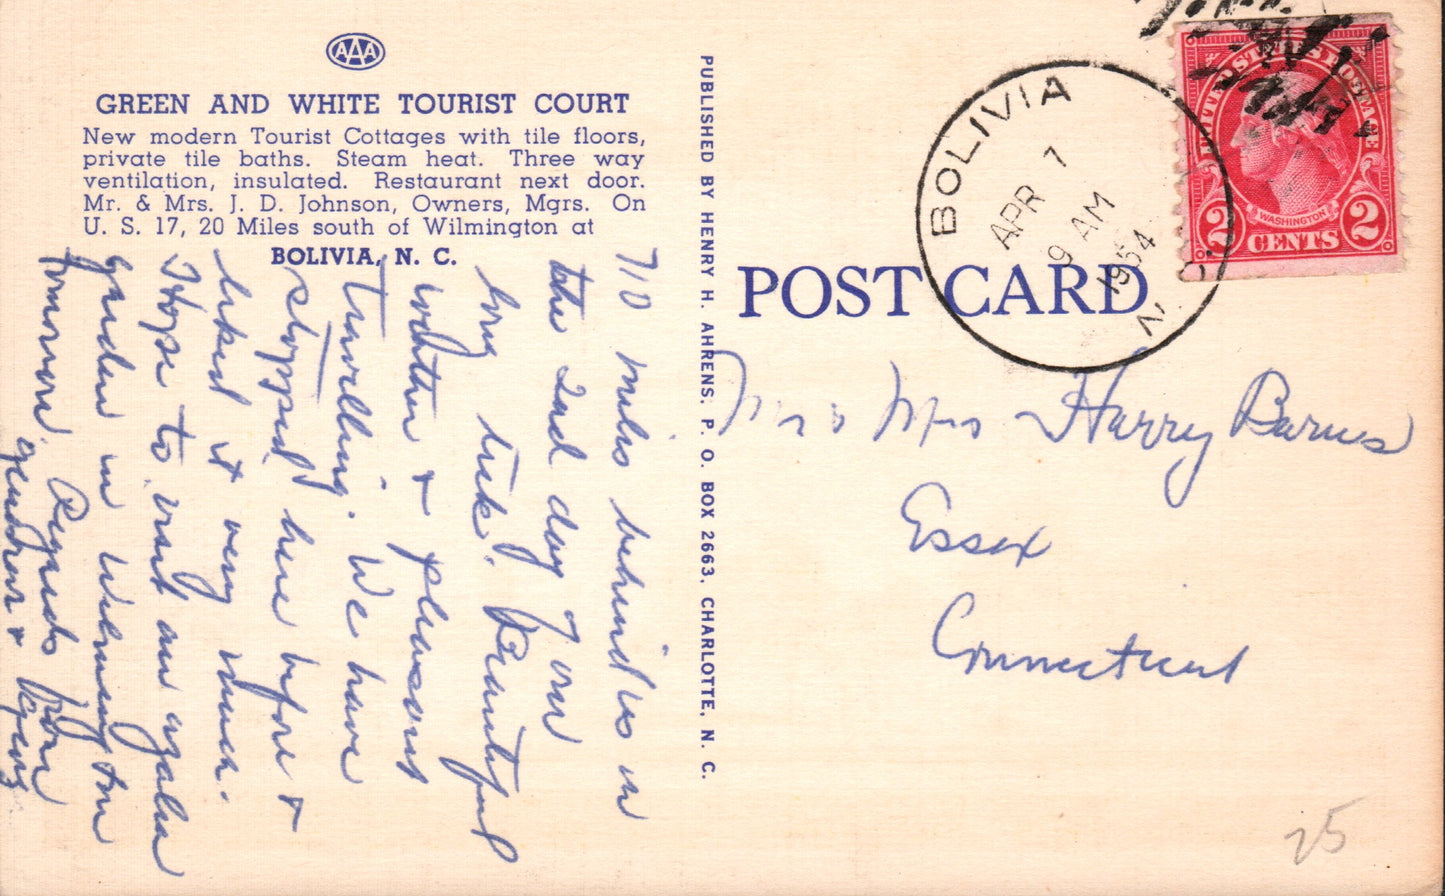 AAA
GREEN AND WHITE TOURIST COURT
New modern Tourist Cottages with tile floors,
private tile baths. Steam heat. Three way
ventilation, insulated. Restaurant next door.
Mr. & Mrs. J. D. Johnson, Owners, Mgrs. On
U. S. 17, 20 Miles south of Wilmington at
BOLIVIA, N. C.
710 miles behind us in
the 2nd day of our
long trek. Beautiful
weather & pleasant
Travelling. We have
stopped here before &
liked it very much.
Hope to visit an azalea
garden in Wilmington
Tomorrow.
Regards from
PUBLISHED BY HENRY H. AHRENS, P. O. BOX 2663, CHARLOTTE, N. C.
POST CARD
BOLIVIA
APR 7
9 AM
1954
N. C.
UNITED STATES POSTAGE
WASHINGTON
2 CENTS 2
Mr & Mrs Harry Barnes
Essex
Connecticut
25